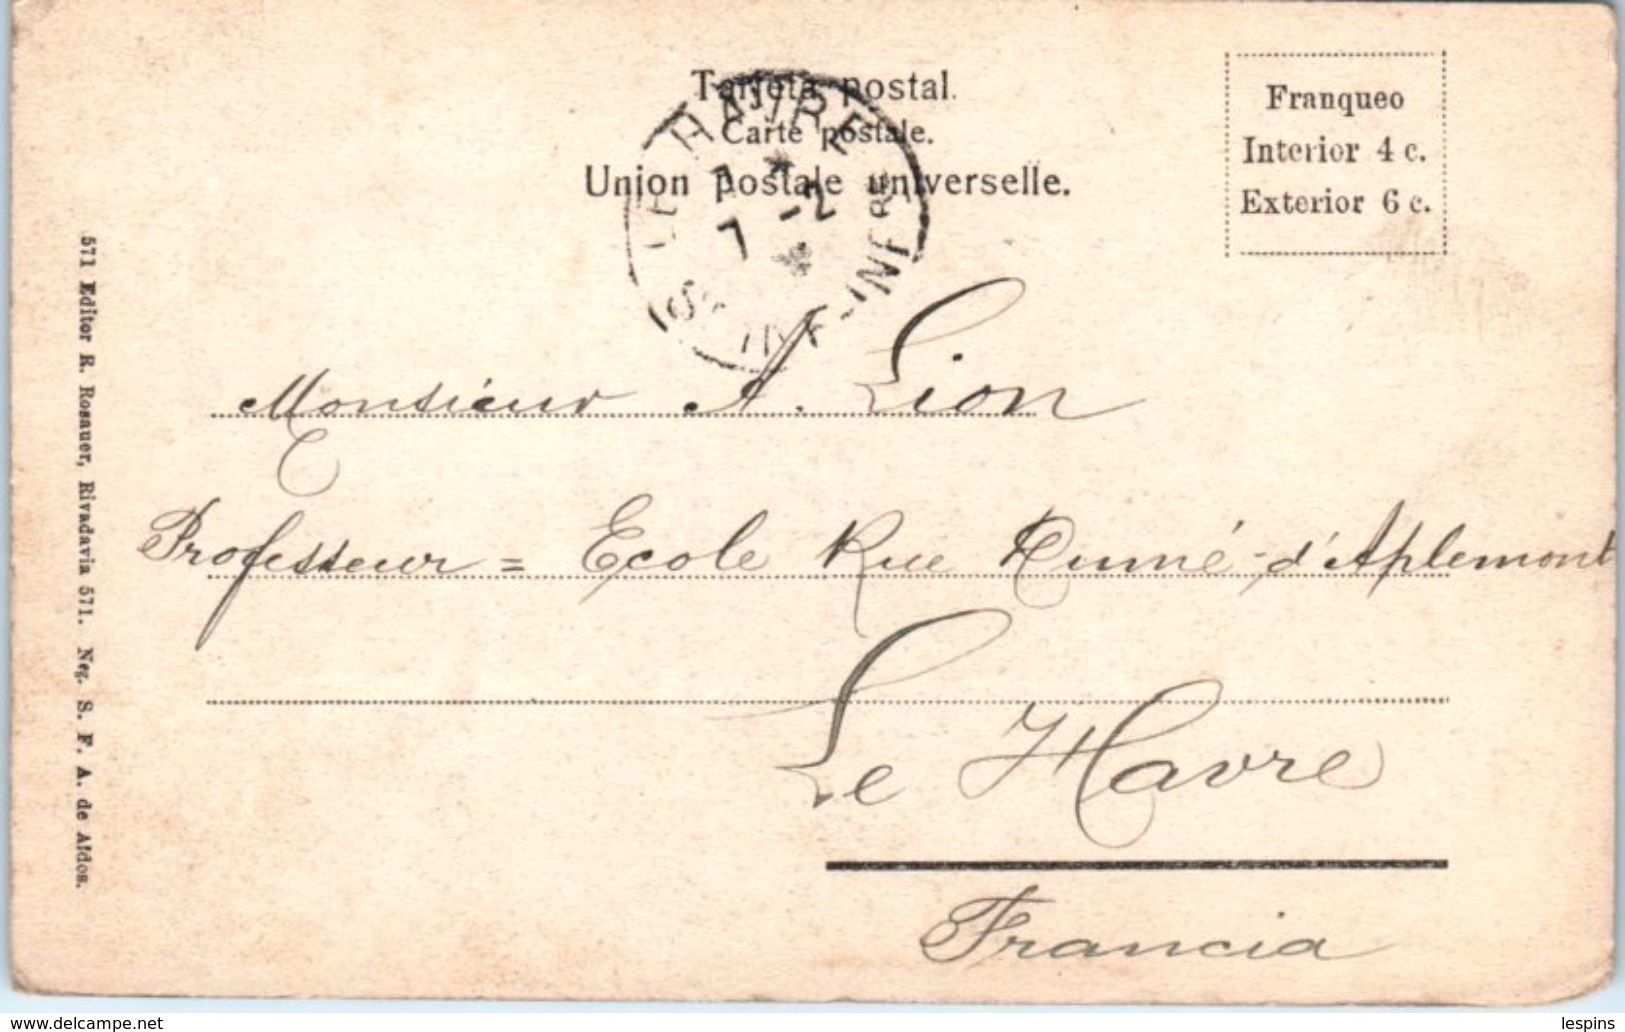 Tarjeta postal.
Carte postale.
Union postale universelle.
Franqueo
Interior 4 c.
Exterior 6 c.
LE HAVRE
7 -2
SEINE-INFRE
Monsieur A. Lion
Professeur = Ecole Rue Dumé-d'Aplemont
Le Havre
Francia
571 Editor R. Rosauer, Rivadavia 571. Neg. S. F. A. de Afdos.
www.delcampe.net
lespins